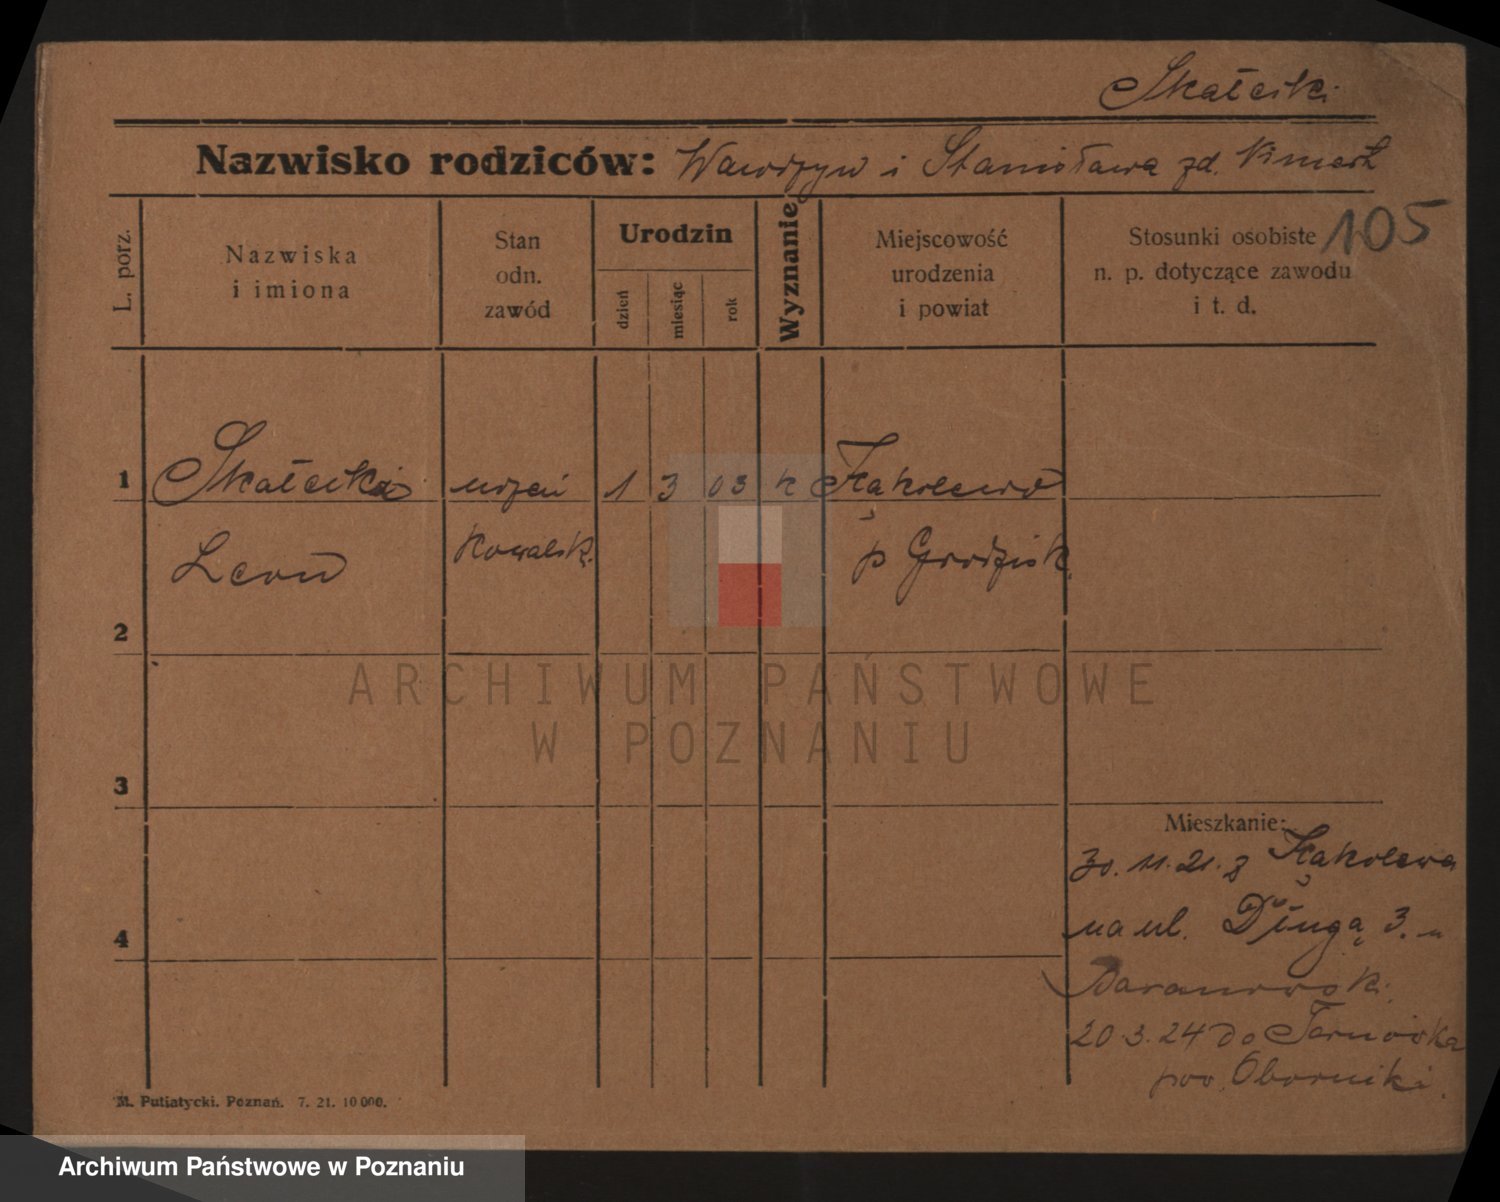 Skałecki
Nazwisko rodziców: Wawrzyn i Stanisława zd.
105
L. porz.
Nazwiska
i imiona
Stan
odn.
zawód
Urodzin
dzień
miesiąc
rok
Wyznanie
Miejscowość
urodzenia
i powiat
Stosunki osobiste
n. p. dotyczące zawodu
i t. d.
1 Skałecki uczeń 1 3 03 k Kąkolewo
Leon kowalsk. p Grodzisk
2
3
4
Mieszkanie:
30.11.21. z Kąkolewa
na ul. Długą 3. u
Baranowski.
20.3.24 do Tarnówka
pow. Oborniki.
M. Putiatycki. Poznań. 7. 21. 10 000.
ARCHIWUM PAŃSTWOWE
W POZNANIU
Archiwum Państwowe w Poznaniu